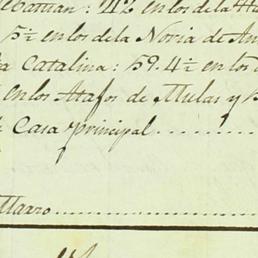 ebastian: 4½ en los de la Ha
5½ en los de la Noria de An
a Catalina: 59.4½ en los
en los Atajos de Mulas y
Casa principal..........
Marzo..........